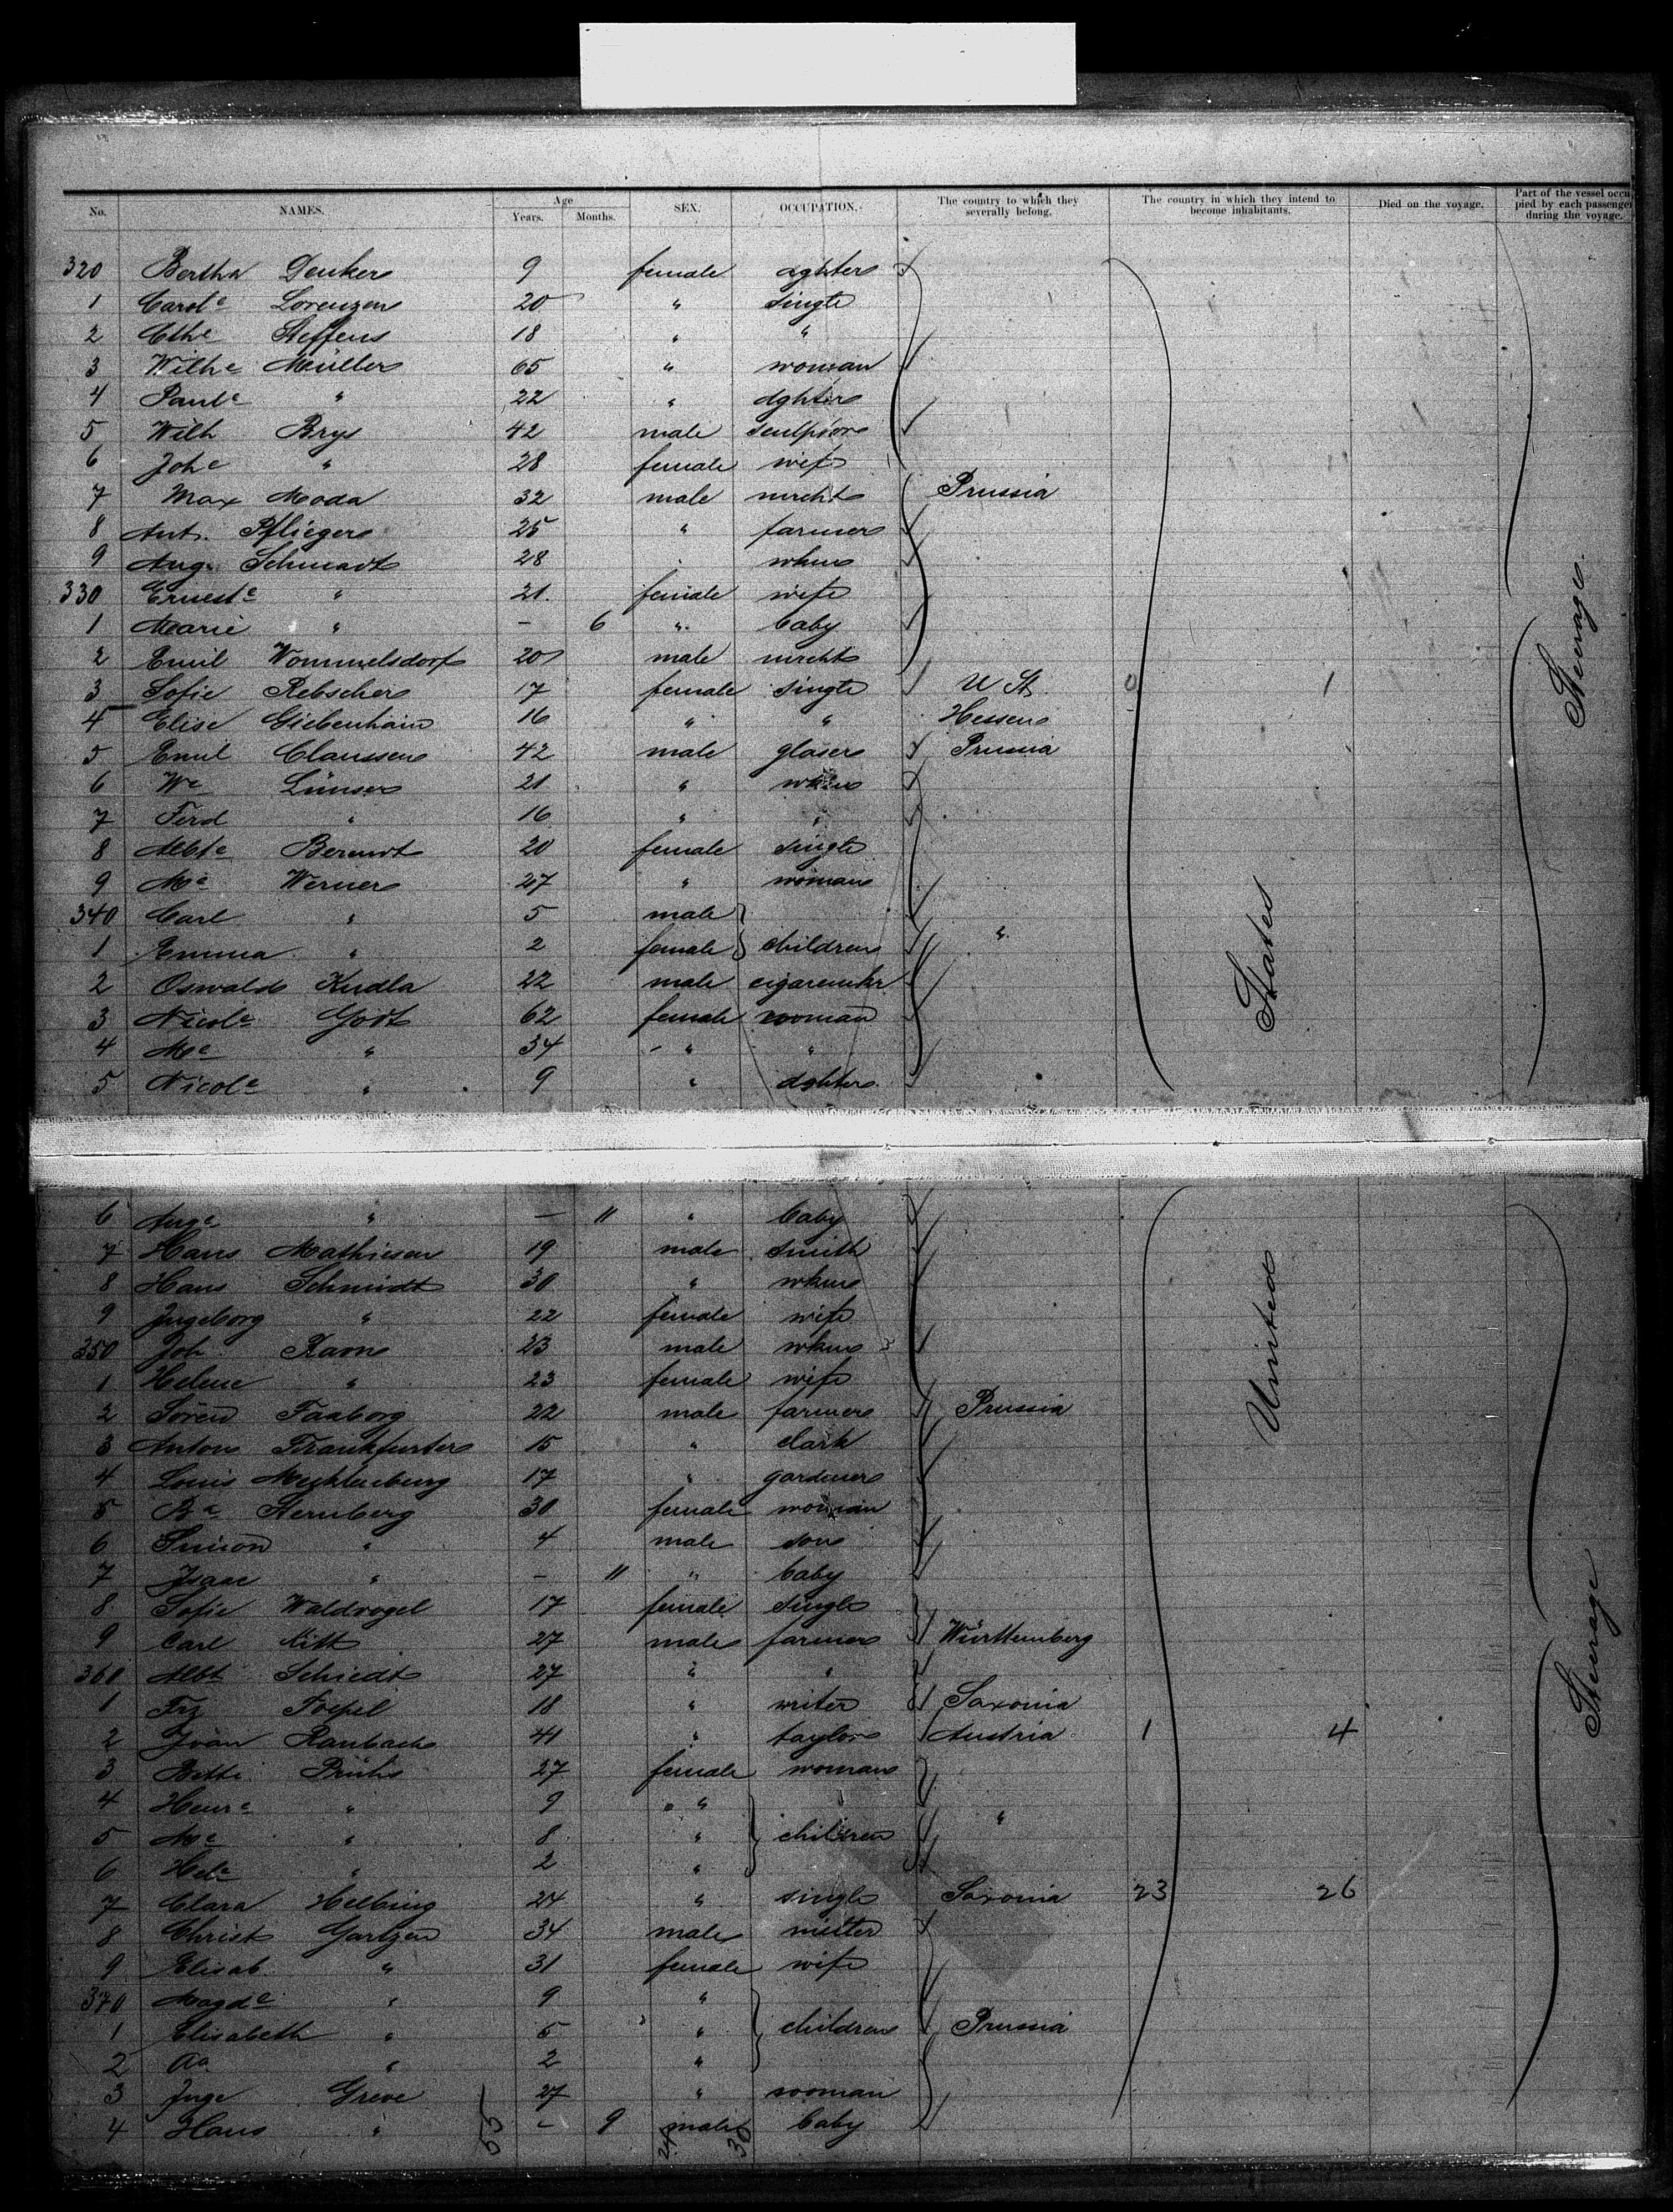 No. NAMES. Age Years. Months. SEX. OCCUPATION. The country to which they severally belong. The country in which they intend to become inhabitants. Died on the voyage. Part of the vessel occupied by each passenger during the voyage.
320 Bertha Denker 9 female dghter
1 Carole Lorenzen 20 " single
2 Cthe Steffens 18 " "
3 Wilhe Müller 65 " woman
4 Paule " 22 " dghter
5 Wilh Brys 42 male sculptor
6 Johe " 28 female wife
7 Max Moda 32 male mrcht Prussia
8 Ant. Pflieger 25 " farmer
9 Aug. Schmadt 28 " wkm
330 Erneste " 21 female wife
1 Marie " — 6 " baby
2 Emil Wommelsdorf 20 male mrcht
3 Sofie Rebscher 17 female single U St. 0 1
4 Elise Giebenhain 16 " " Hessen
5 Emil Claussen 42 male glaser Prussia
6 We Lünser 21 " wkm
7 Ferd " 16 " "
8 Albte Berendt 20 female single
9 Me Werner 27 " woman
340 Carl " 5 male
1 Emma " 2 female children "
2 Oswald Kudla 22 male cigaremkr
3 Nicole Godt 62 female woman
4 Me " 34 " "
5 Nicole " 9 " dghter
States
Steerage.
6 Auge " — 11 " baby
7 Hans Mathiesen 19 male smith
8 Hans Schmidt 30 " wkm
9 Ingeborg " 22 female wife
350 Joh Ravn 23 male wkm
1 Helene " 23 female wife
2 Sören Faaborg 22 male farmer Prussia
3 Anton Frankfurter 15 " clark
4 Louis Mecklenburg 17 " gardener
5 Ba Sternberg 30 female woman
6 Simon " 4 male son
7 Isaac " — 11 " baby
8 Sofie Waldvogel 17 female single
9 Carl Kitt 27 male farmer Württemberg
360 Albt Schiedt 27 " "
1 Frz Toepel 18 " writer Saxonia
2 Ivan Raubach 41 " taylor Austria 1 4
3 Betti 27 female woman
4 Henre " 9 "
5 Me " 8 " children "
6 Hele " 2 "
7 Clara Helbing 24 " single Saxonia 23 26
8 Christ Gartzen 34 male miller
9 Elisab. " 31 female wife
370 Magde " 9 "
1 Elisabeth " 5 " children Prussia
2 Aa " 2 "
3 Inge Greve 27 " woman
4 Hans " — 9 male baby
United
Steerage
55 24 30